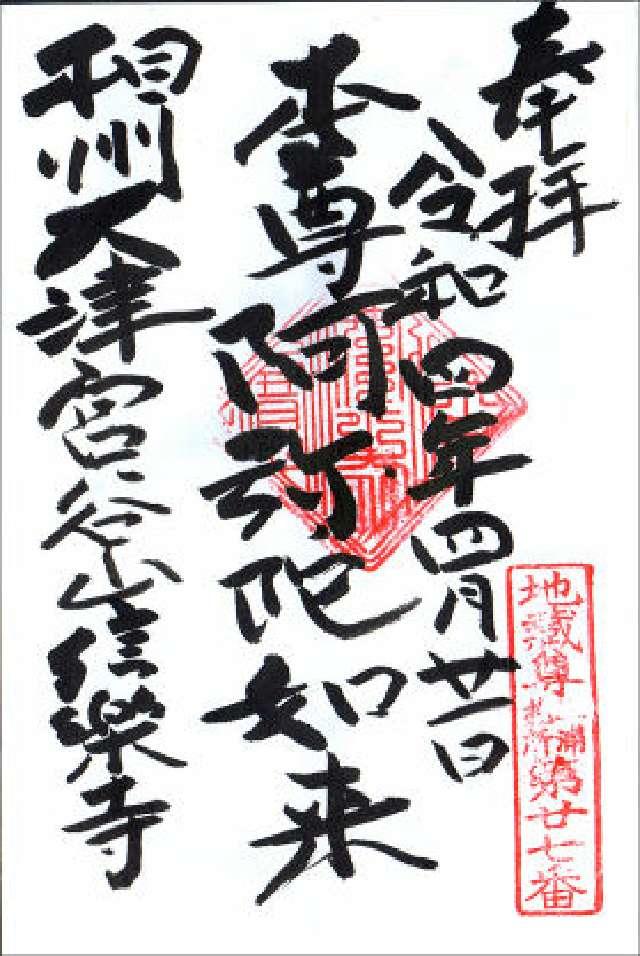 奉拝
令和四年四月廿一日
本尊阿弥陀如来
相州大津宮谷山信樂寺
地蔵尊
第廿七番